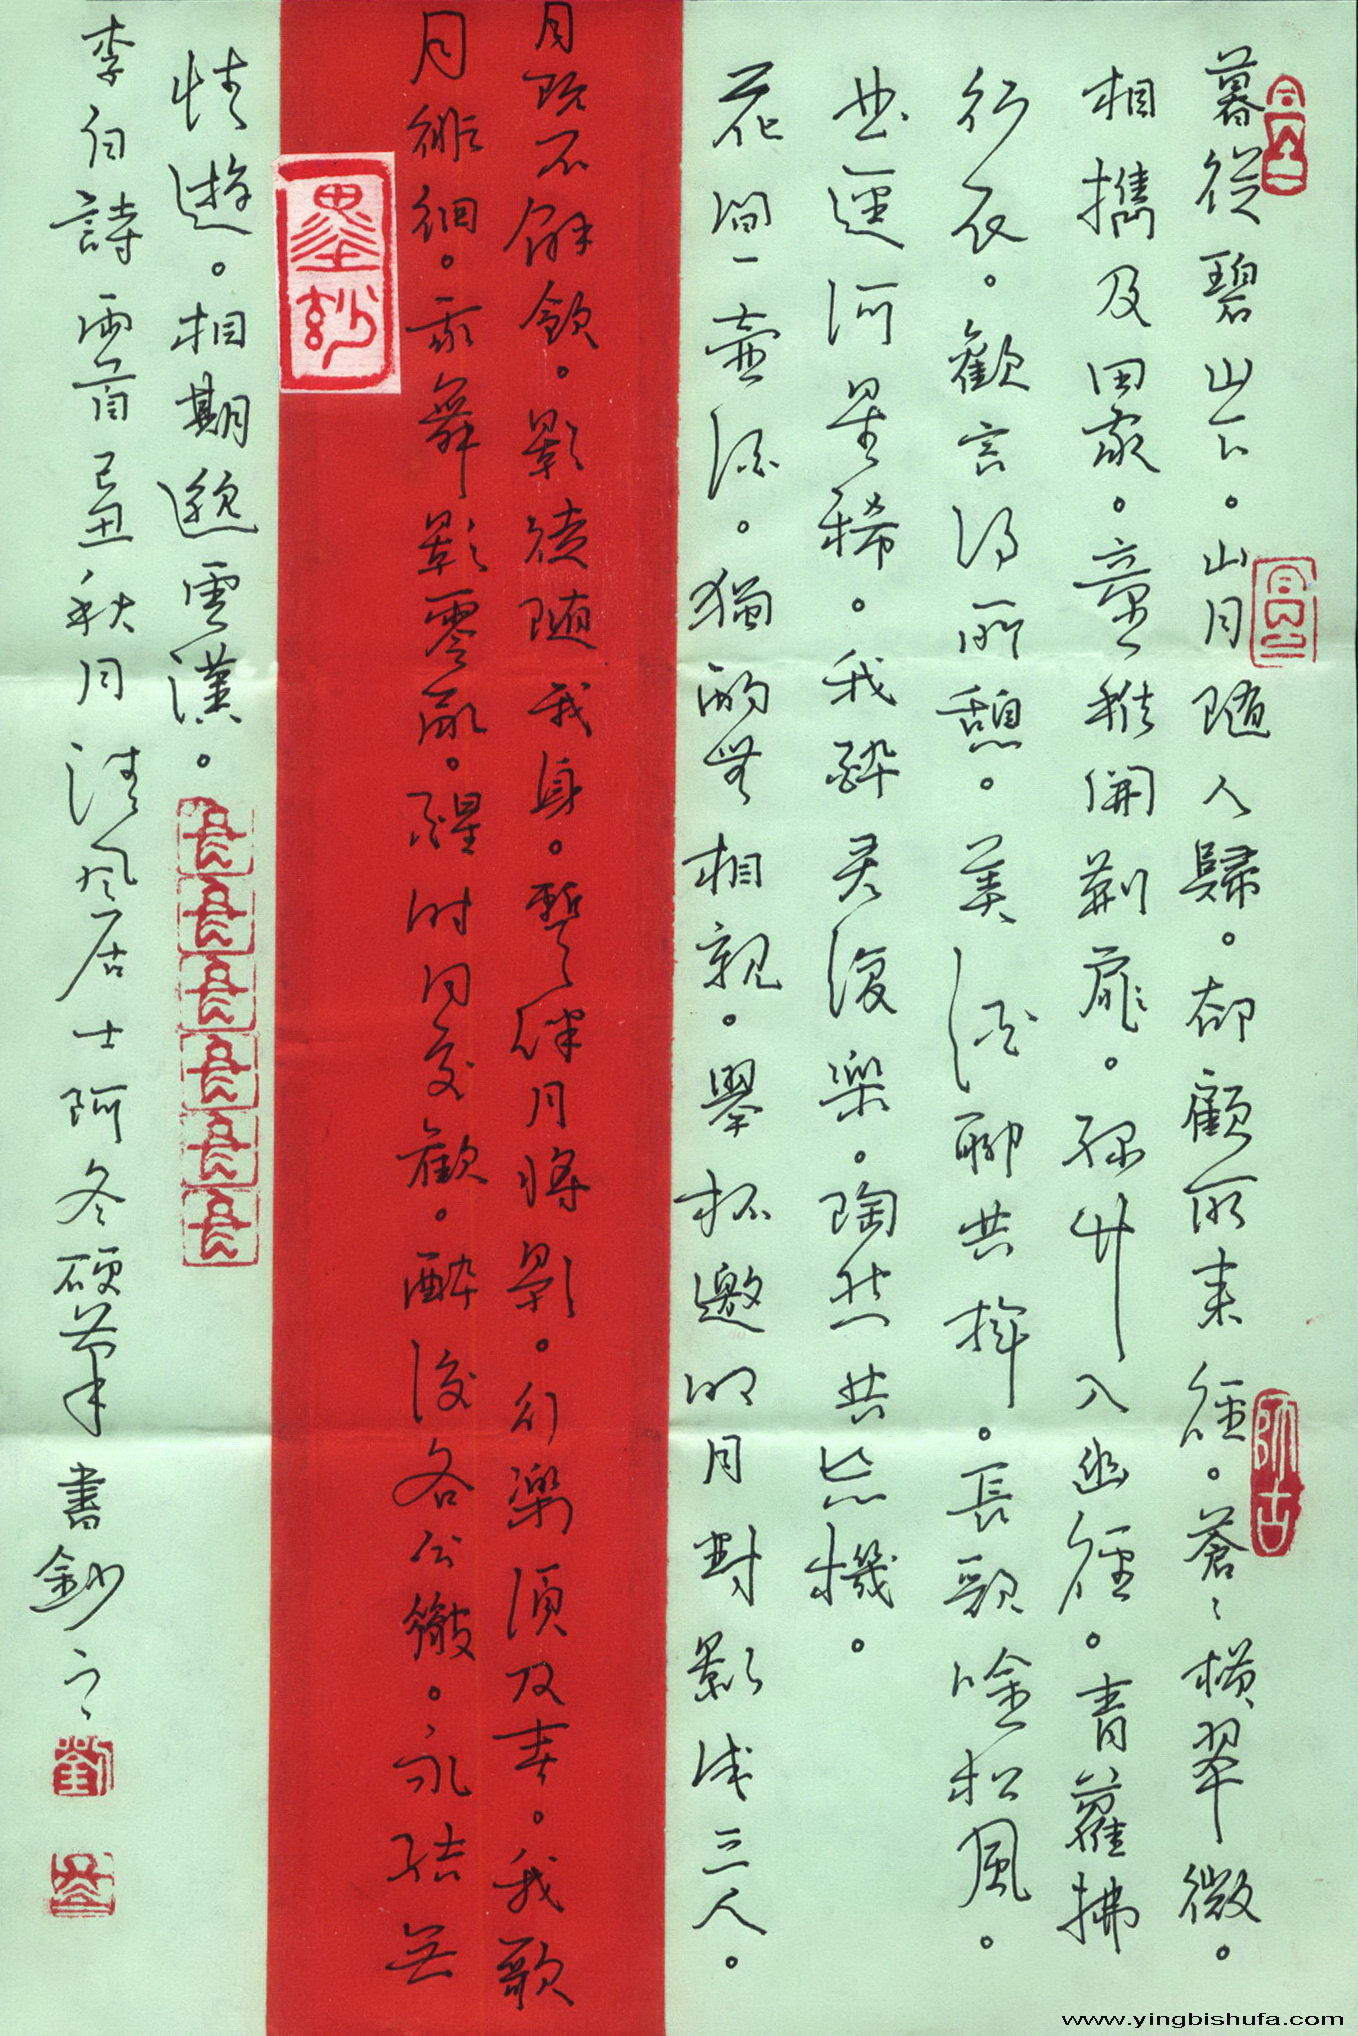 暮從碧山下。山月隨人歸。却顧所來徑。蒼〻橫翠微。
相攜及田家。童稚開荆扉。綠竹入幽徑。青蘿拂
行衣。歡言得所憩。美酒聊共揮。長歌吟松風。
曲盡河星稀。我醉君復樂。陶然共忘機。
花間一壺酒。獨酌無相親。舉杯邀明月對影成三人。
月既不解飲。影徒隨我身。暫伴月將影。行樂須及春。我歌
月徘徊。我舞影零亂。醒時同交歡。醉後各分散。永結無
情遊。相期邈雲漢。
李白詩兩首己丑秋月清風居士阿冬硬筆書鈔之
墨鈔
師古
劉
www.yingbishufa.com